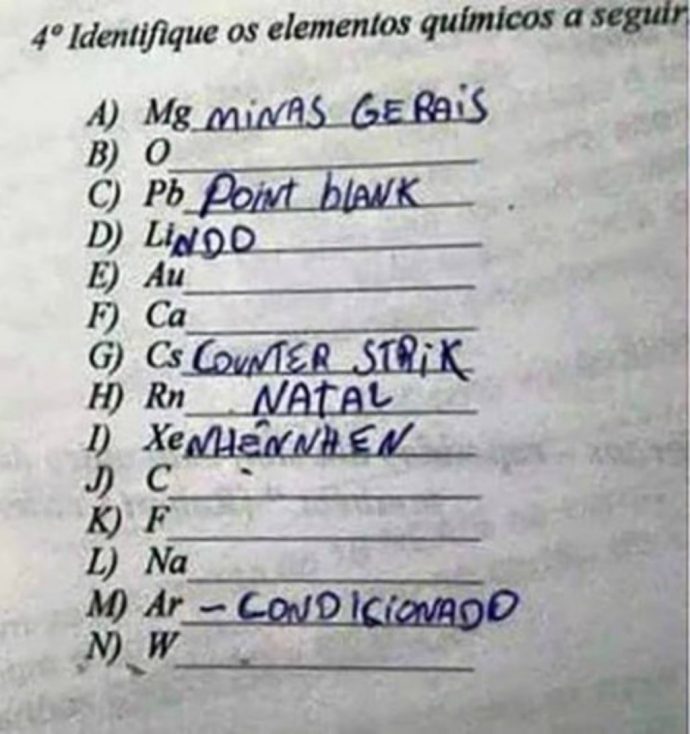 4º Identifique os elementos químicos a seguir
A) Mg MiNAS GERAiS
B) O
C) Pb Point blANK
D) LiNDO
E) Au
F) Ca
G) Cs COUNTER STRiK
H) Rn NATAL
I) XeNHENNHEN
J) C
K) F
L) Na
M) Ar - CONDICiONADO
N) W